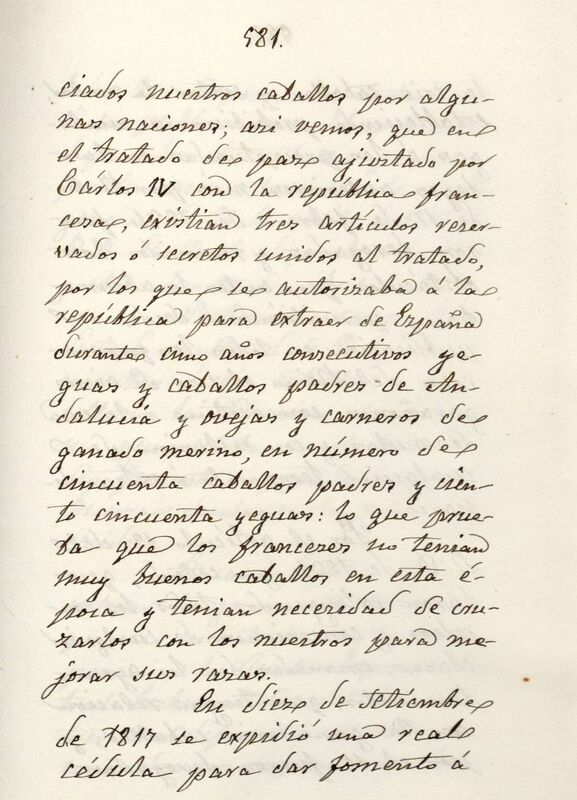 581.
ciados nuestros caballos por algu-
nas naciones; asi vemos, que en
el tratado de paz ajustado por
Cárlos IV con la república fran-
cesa, existian tres artículos reser-
vados ó secretos unidos al tratado,
por los que se autorizaba á la
república para extraer de España
durante cinco años consecutivos ye-
guas y caballos padres de An-
dalucía y ovejas y carneros de
ganado merino, en número de
cincuenta caballos padres y cien-
to cincuenta yeguas: lo que prue-
ba que los franceses no tenian
muy buenos caballos en esta é-
poca y tenian necesidad de cru-
zarlos con los nuestros para me-
jorar sus razas.
En diez de Setiembre
de 1817 se expidió una real
cédula para dar fomento á